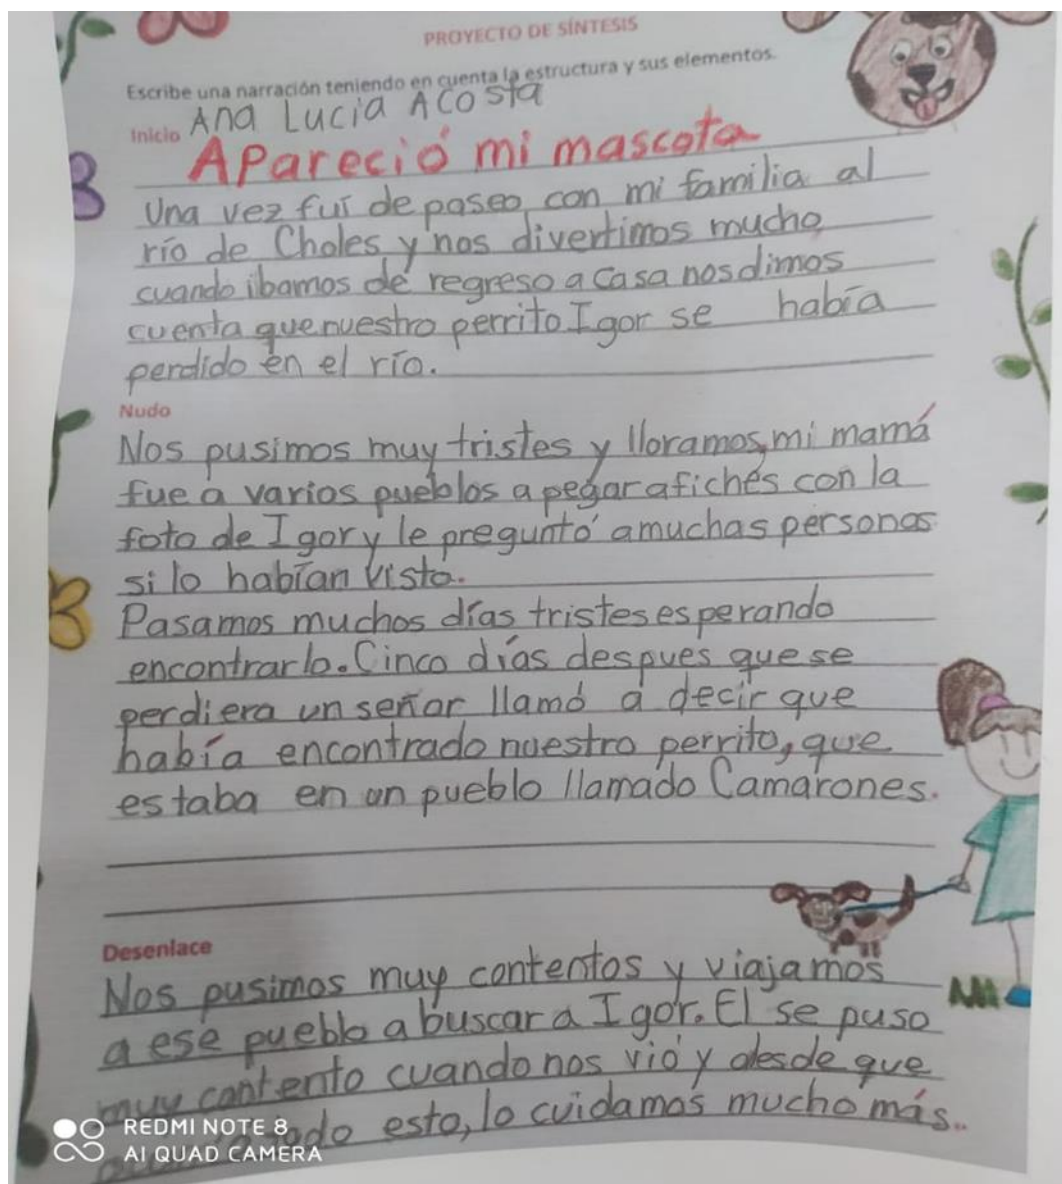 PROYECTO DE SÍNTESIS
Escribe una narración teniendo en cuenta la estructura y sus elementos.
Ana Lucia Acosta
Inicio
Apareció mi mascota
Una vez fui de paseo con mi familia al
río de Choles y nos divertimos mucho
cuando ibamos de regreso a casa nos dimos
cuenta que nuestro perrito Igor se había
perdido en el río.
Nudo
Nos pusimos muy tristes y lloramos, mi mamá
fue a varios pueblos a pegar afiches con la
foto de Igor y le preguntó a muchas personas
si lo habían visto.
Pasamos muchos días tristes esperando
encontrarlo. Cinco días despues que se
perdiera un señor llamó a decir que
había encontrado nuestro perrito, que
estaba en un pueblo llamado Camarones.
Desenlace
Nos pusimos muy contentos y viajamos
a ese pueblo a buscar a Igor. El se puso
muy contento cuando nos vió y desde que
esto, lo cuidamos mucho más..
REDMI NOTE 8
AI QUAD CAMERA